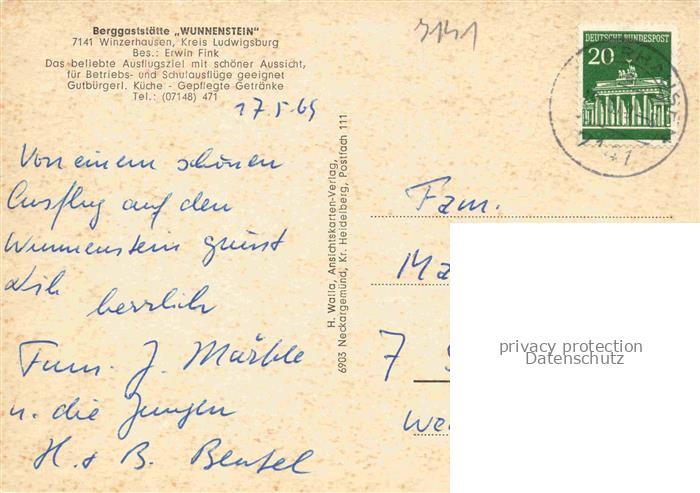 Berggaststätte „WUNNENSTEIN"
7141 Winzerhausen, Kreis Ludwigsburg
Bes.: Erwin Fink
Das beliebte Ausflugsziel mit schöner Aussicht,
für Betriebs- und Schulausflüge geeignet
Gutbürgerl. Küche - Gepflegte Getränke
Tel.: (07148) 471
7141
DEUTSCHE BUNDESPOST
20
17.5.69
Von einem schönen
Ausflug auf den
Wunnenstein grüsst
Dich herzlich
Fam. J. Märkle
u. die Jungen
H. + B. Beutel
H. Walla, Ansichtskarten-Verlag,
6903 Neckargemünd, Kr. Heidelberg, Postfach 111
Fam.
Mä
7 S
We
privacy protection
Datenschutz